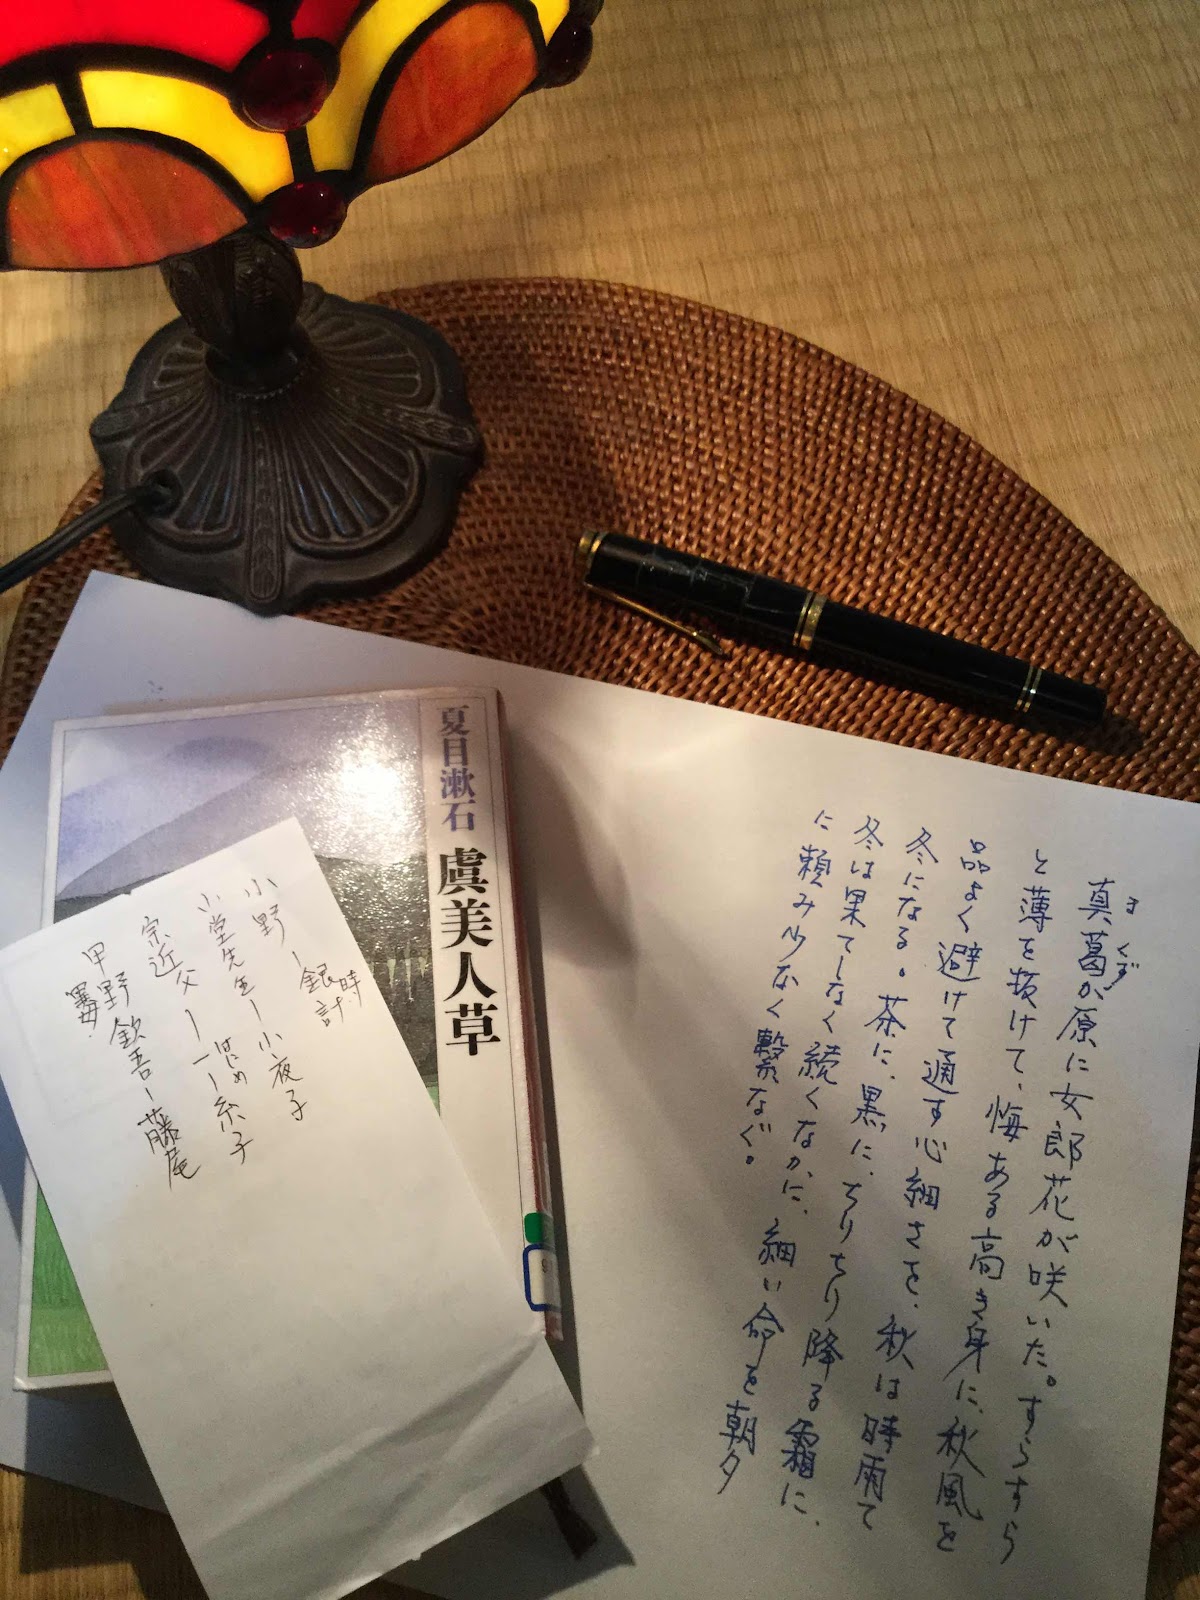 夏目漱石 虞美人草
真葛が原に女郎花が咲いた。すらすら
まくず
と薄を抜けて、悔ある高き身に、秋風を
品よく避けて通す心細さを、秋は時雨て
冬になる。茶に、黒に、ちりちり降る霜に、
冬は果てしなく続くなかに、細い命を朝夕
に頼み少なく繋なぐ。
小野ー銀時計
小堂先生ー小夜子
宗近父ー一ー糸子
はじめ
甲野欽吾ー藤尾